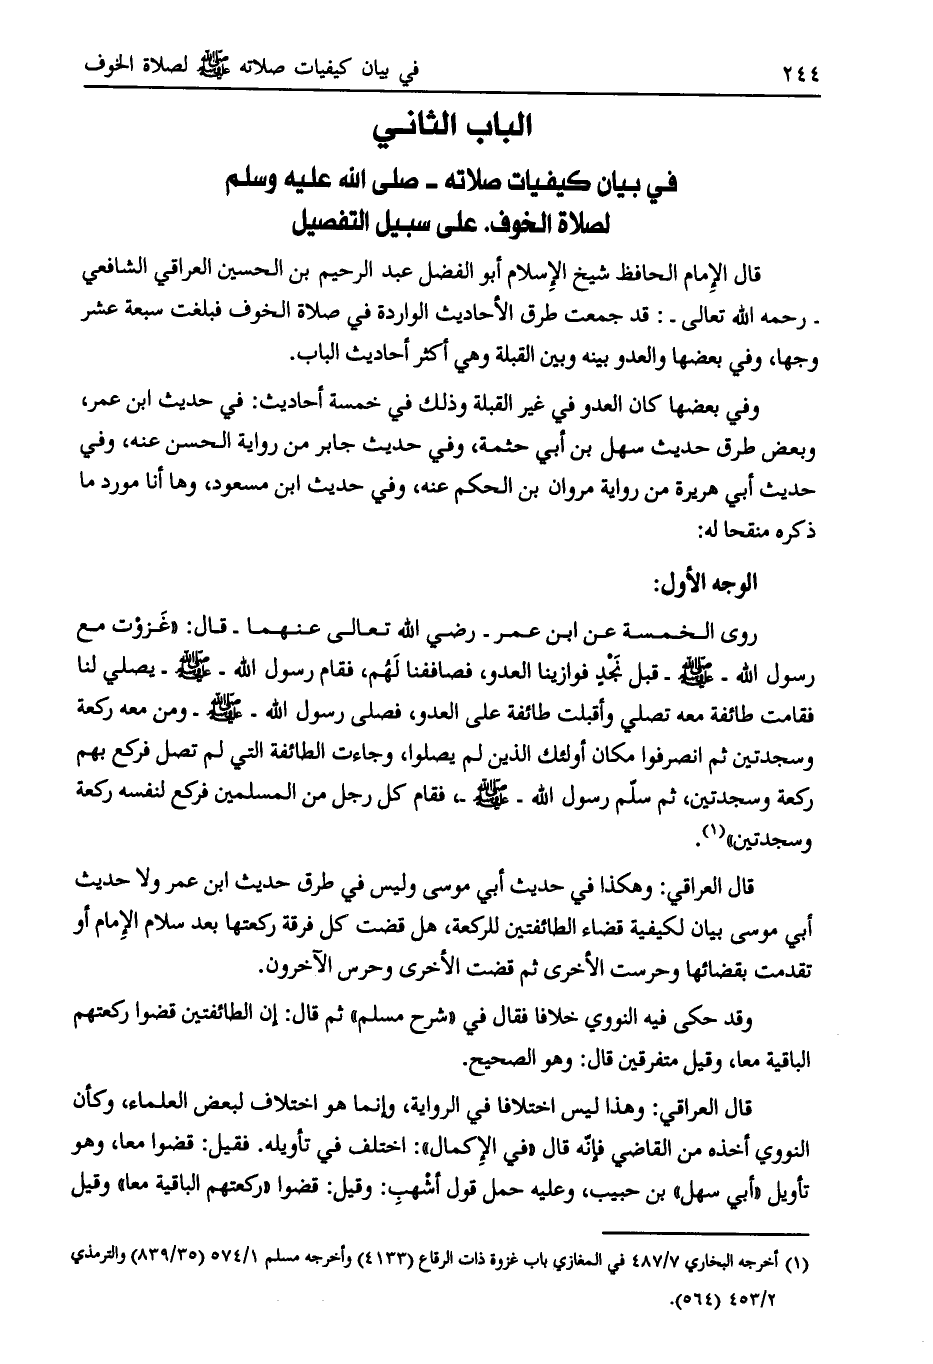 ٢٤٤ في بيان كيفيات صلاته ﷺ لصلاة الخوف
الباب الثاني
في بيان كيفيات صلاته ـ صلى الله عليه وسلم
لصلاة الخوف. على سبيل التفصيل
قال الإِمام الحافظ شيخ الإِسلام أبو الفضل عبد الرحيم بن الحسين العراقي الشافعي
ـ رحمه الله تعالى ـ: قد جمعت طرق الأحاديث الواردة في صلاة الخوف فبلغت سبعة عشر
وجها، وفي بعضها والعدو بينه وبين القبلة وهي أكثر أحاديث الباب.
وفي بعضها كان العدو في غير القبلة وذلك في خمسة أحاديث: في حديث ابن عمر،
وبعض طرق حديث سهل بن أبي حثمة، وفي حديث جابر من رواية الحسن عنه، وفي
حديث أبي هريرة من رواية مروان بن الحكم عنه، وفي حديث ابن مسعود، وها أنا مورد ما
ذكره منقحا له:
الوجه الأول:
روى الخمسة عن ابن عمر ـ رضي الله تعالى عنهما ـ قال: «غَزوْت مع
رسول الله ـ ﷺ ـ قبل نَجْدٍ فوازينا العدو، فصاففنا لَهُم، فقام رسول الله ـ ﷺ ـ يصلي لنا
فقامت طائفة معه تصلي وأقبلت طائفة على العدو، فصلى رسول الله ـ ﷺ ـ ومن معه ركعة
وسجدتين ثم انصرفوا مكان أولئك الذين لم يصلوا، وجاءت الطائفة التي لم تصل فركع بهم
ركعة وسجدتين، ثم سلّم رسول الله ـ ﷺ ـ، فقام كل رجل من المسلمين فركع لنفسه ركعة
وسجدتين»(١).
قال العراقي: وهكذا في حديث أبي موسى وليس في طرق حديث ابن عمر ولا حديث
أبي موسى بيان لكيفية قضاء الطائفتين للركعة، هل قضت كل فرقة ركعتها بعد سلام الإِمام أو
تقدمت بقضائها وحرست الأخرى ثم قضت الأخرى وحرس الآخرون.
وقد حكى فيه النووي خلافا فقال في «شرح مسلم» ثم قال: إن الطائفتين قضوا ركعتهم
الباقية معا، وقيل متفرقين قال: وهو الصحيح.
قال العراقي: وهذا ليس اختلافا في الرواية، وإنما هو اختلاف لبعض العلماء، وكأن
النووي أخذه من القاضي فإنّه قال «في الإكمال»: اختلف في تأويله. فقيل: قضوا معا، وهو
تأويل «أبي سهل» بن حبيب، وعليه حمل قول أشْهبِ: وقيل: قضوا «ركعتهم الباقية معا» وقيل
(١) أخرجه البخاري ٤٨٧/٧ في المغازي باب غزوة ذات الرقاع (٤١٣٣) وأخرجه مسلم ٥٧٤/١ (٨٣٩/٣٥) والترمذي
٤٥٣/٢ (٥٦٤).